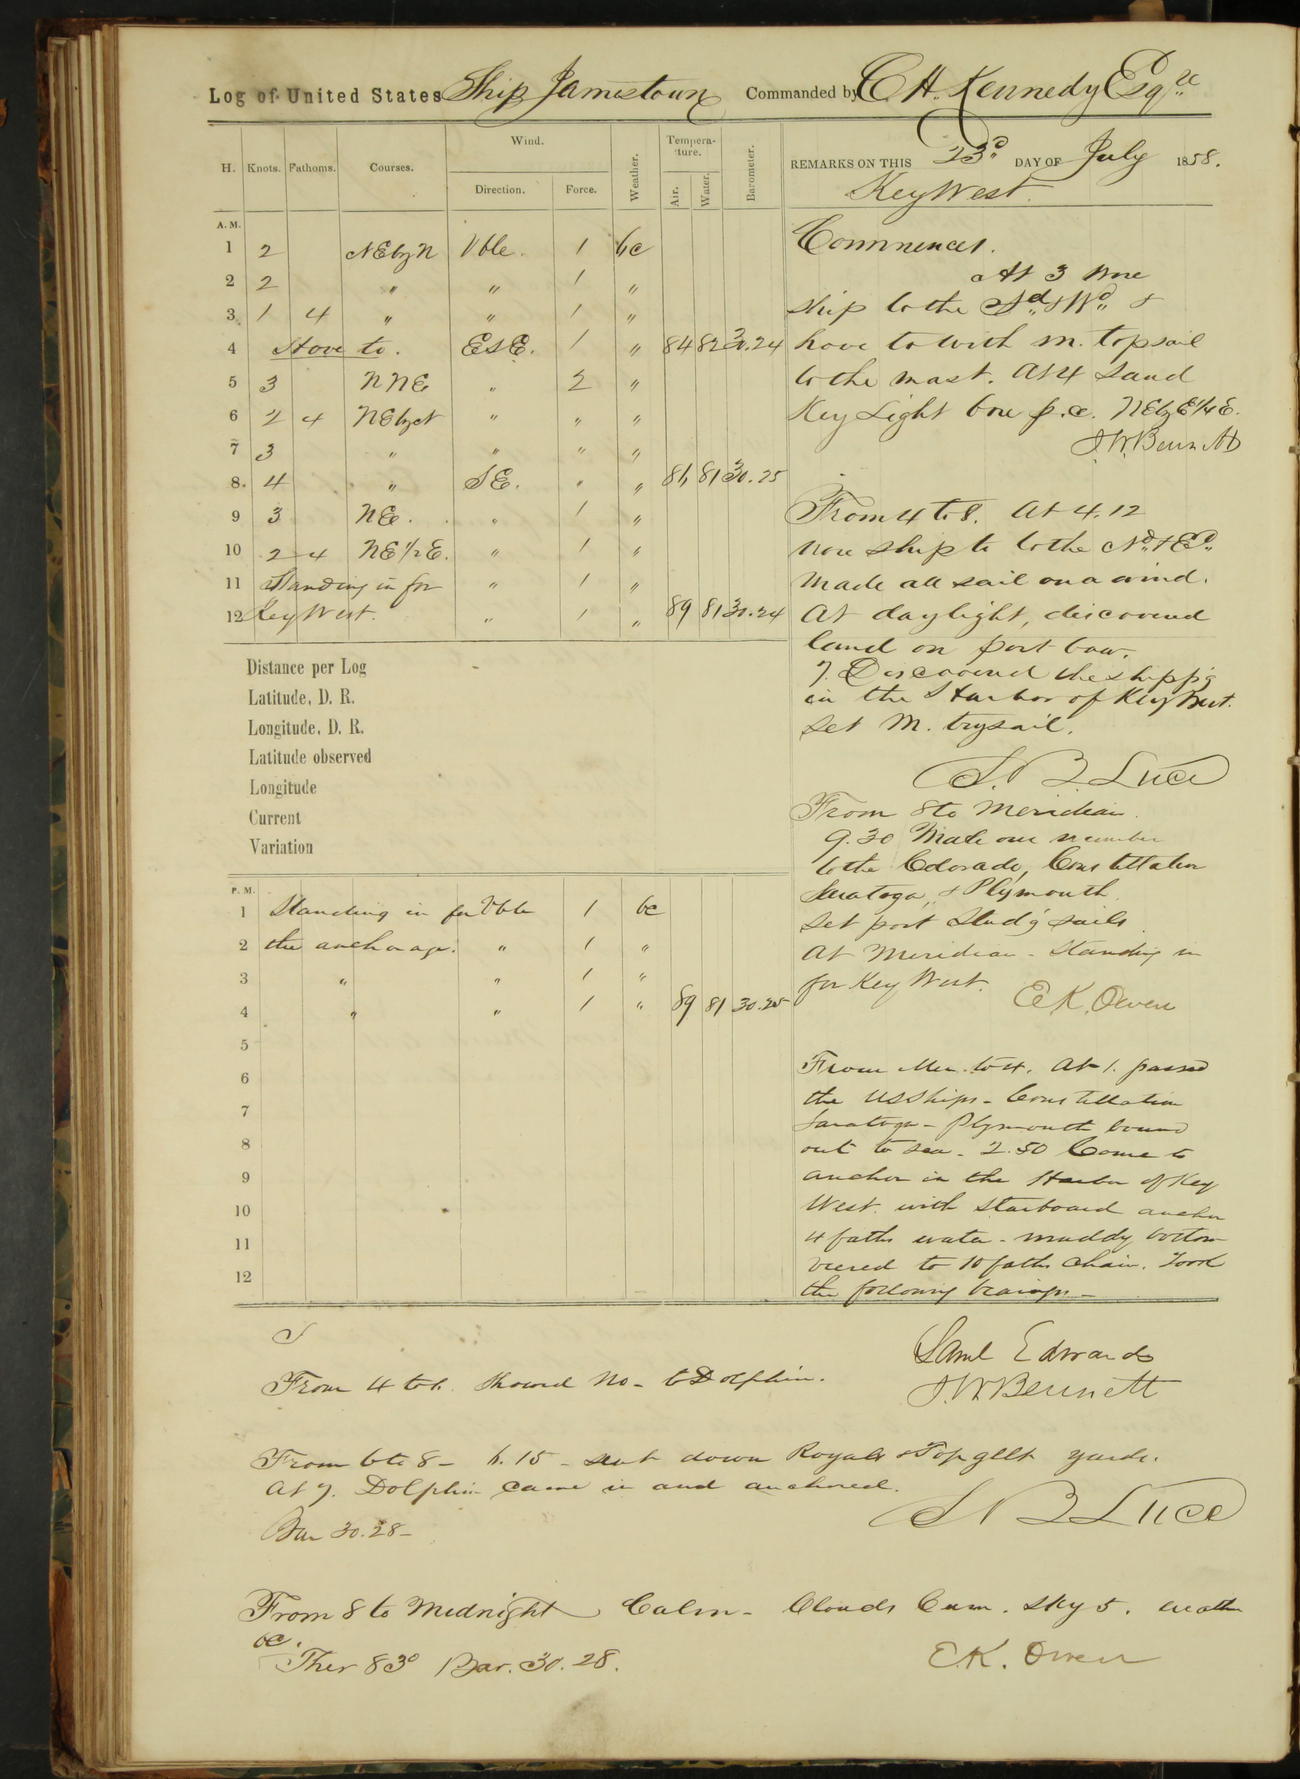 Log of United States Ship Jamestown Commanded by C. H. Kennedy Esqre
H. Knots. Fathoms. Courses. Wind. Direction. Force. Weather. Temperature. Air. Water. Barometer.
REMARKS ON THIS 23d DAY OF July 1858.
Key West.
A. M.
1 2 NE by N Vble. 1 bc
2 2 " " 1 "
3 1 4 " " 1 "
4 Hove to. ESE. 1 " 84 82 30.24
5 3 NNE " 2 "
6 2 4 NE by N " " "
7 3 " " " "
8 4 " SE. " " 86 81 30.25
9 3 NE. " 1 "
10 2 4 NE 1/2 E. " 1 "
11 Standing in for " 1 "
12 Key West. " 1 " 89 81 30.24
Distance per Log
Latitude, D. R.
Longitude, D. R.
Latitude observed
Longitude
Current
Variation
P. M.
1 Standing in for Vble 1 bc
2 the anchorage. " 1 "
3 " " 1 "
4 " " 1 " 89 81 30.25
5
6
7
8
9
10
11
12
Commences.
At 3 wore
ship to the Sd & Wd &
hove to with m. topsail
to the mast. At 4 Sand
Key Light bore p.c. NE by E 1/4 E.
J. W. Bennett
From 4 to 8. At 4.12
wore ship to the Nd & Ed
Made all sail on a wind.
At daylight, discovered
land on port bow.
7. Discovered the shipp'g
in the Harbor of Key West.
Set M. trysail.
S. B. Luce
From 8 to Meridian.
9.30 Made our number
to the Colorado, Constellation
Saratoga, & Plymouth.
Set port Stud'g sails
At Meridian - Standing in
for Key West.
E. K. Owen
From Mer. to 4. At 1. passed
the US Ships - Constellation
Saratoga - Plymouth bound
out to sea - 2.50 Come to
anchor in the Harbor of Key
West. with starboard anchor
4 faths water - muddy bottom
veered to 10 faths chain. Took
the following bearings -
Saml Edwards
From 4 to 6. Showed No - to Dolphin.
J. W. Bennett
From 6 to 8 - 6.15 - sent down Royal & Top gllt yards.
At 7. Dolphin came in and anchored.
S B Luce
Bar 30.28 -
From 8 to Midnight Calm - Clouds Cum. Sky 5. weather
bc.
Ther 83° Bar. 30.28.
E. K. Owen